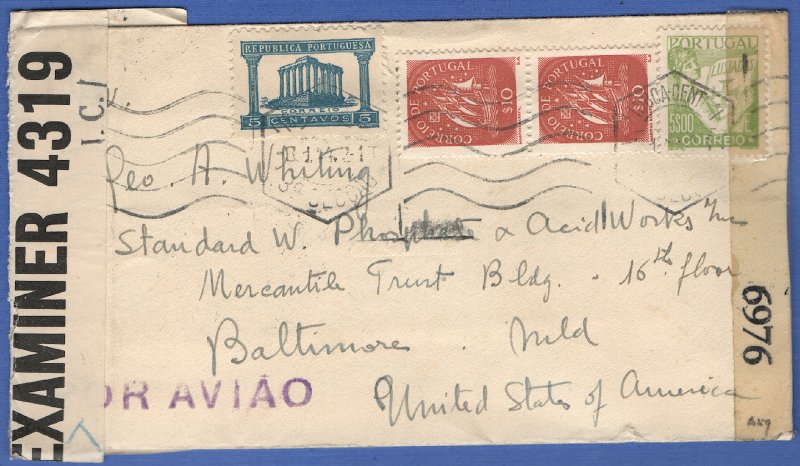 EXAMINER 4319
I.C./
REPUBLICA PORTUGUESA
CORREIO
5 CENTAVOS 5
CORREIO DE PORTUGAL
$10
CORREIO DE PORTUGAL
$10
PORTUGAL
5$00
CORREIO
Geo. A. Whiting
Standard W. Phosphate & Acid Works Inc
Mercantile Trust Bldg. - 16th floor
Baltimore. Md
United States of America
OR AVIÃO
6976